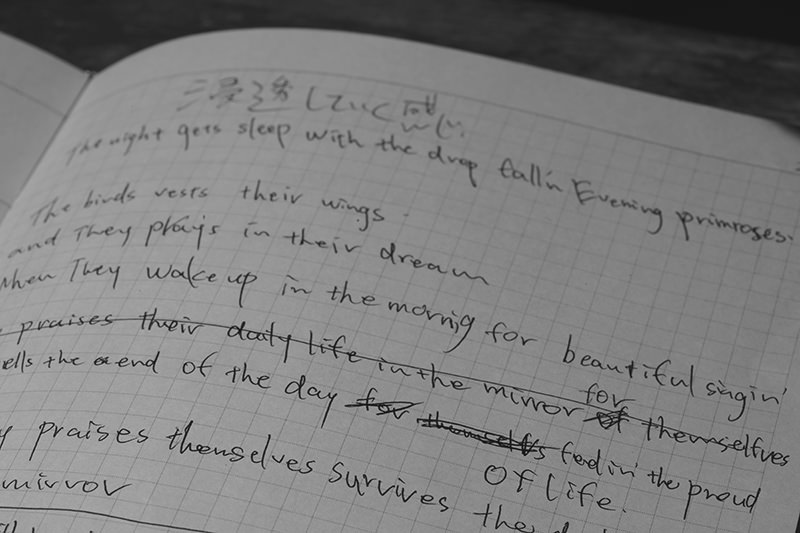 浸透していく感じ
The night gets sleep with the drop fallin Evening primroses.
The birds rests their wings.
and They plays in their dream
When They wake up in the mornig for beautiful singin'
praises their daily life in the mirror for themselfves
ells the end of the day feelin' the proud
Of Life.
y praises themselves survives the
mirror